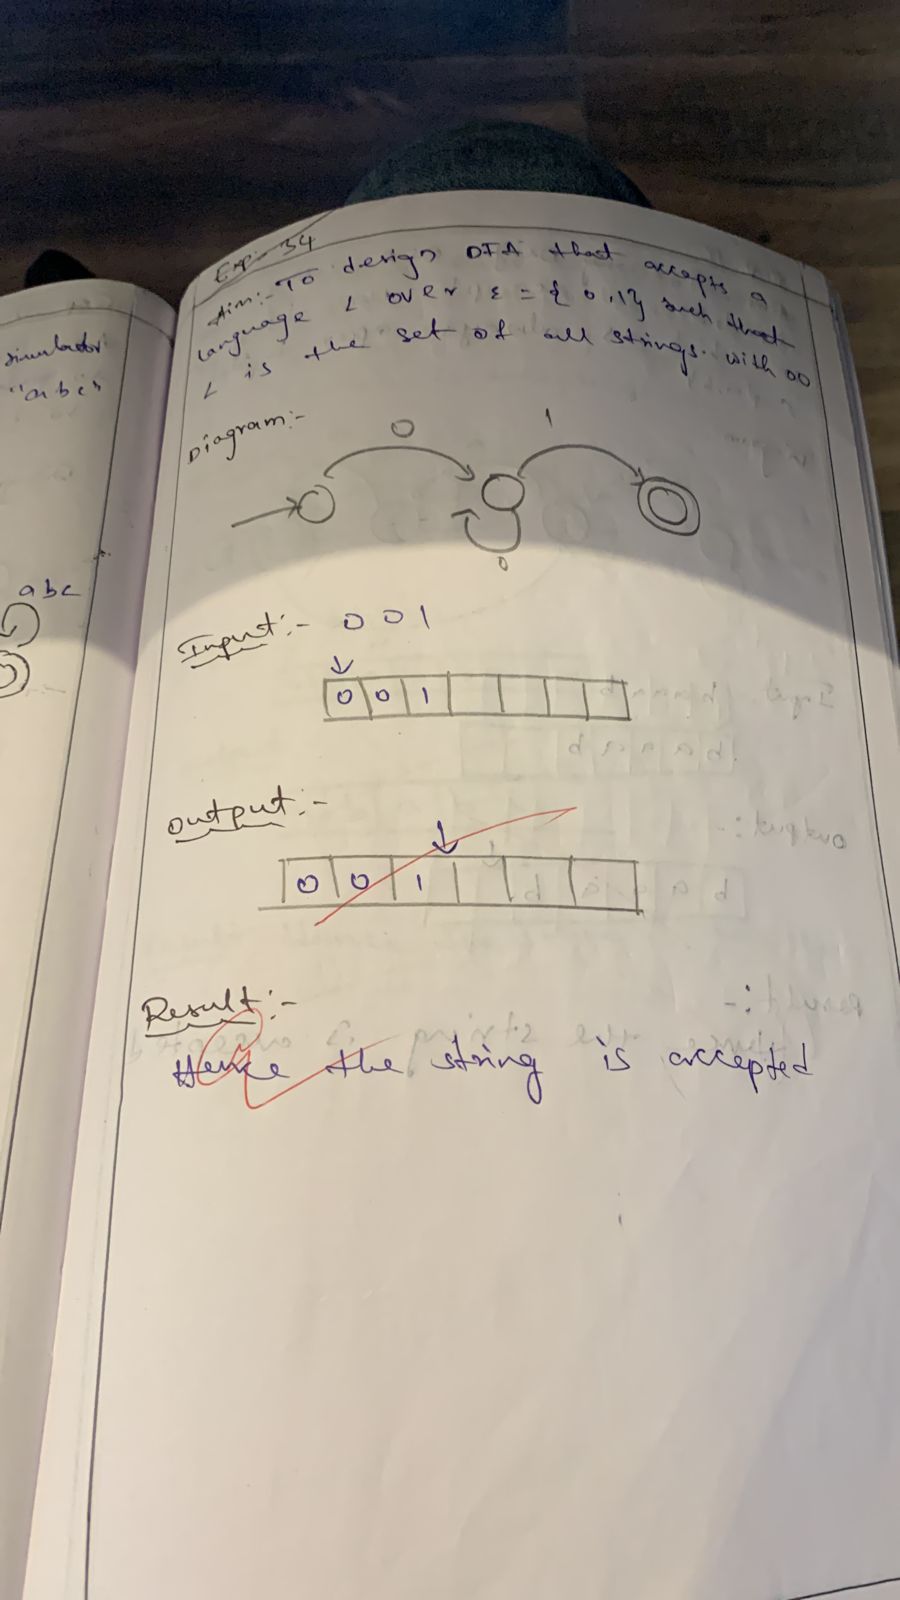 simulator
"abc"
abc
Exp:- 34
Aim:- To design DFA that accepts a
language L over ε = { 0,1} such that
L is the set of all strings. with 00
Diagram:-
0
1
0
Input:- 001
0 0 1
Output:-
0 0 1
Result:-
Hence the string is accepted